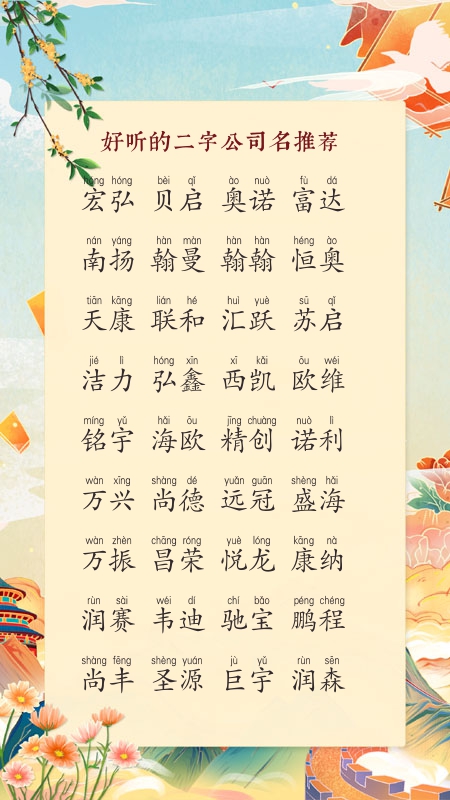 好听的二字公司名推荐
hóng hóng bèi qǐ ào nuò fù dá
宏弘 贝启 奥诺 富达
nán yáng hàn màn hàn hàn héng ào
南扬 翰曼 翰翰 恒奥
tiān kāng lián hé huì yuè sū qǐ
天康 联和 汇跃 苏启
jié lì hóng xīn xī kǎi ōu wéi
洁力 弘鑫 西凯 欧维
míng yǔ hǎi ōu jīng chuàng nuò lì
铭宇 海欧 精创 诺利
wàn xīng shàng dé yuǎn guān shèng hǎi
万兴 尚德 远冠 盛海
wàn zhèn chāng róng yuè lóng kāng nà
万振 昌荣 悦龙 康纳
rùn sài wéi dí chí bǎo péng chéng
润赛 韦迪 驰宝 鹏程
shàng fēng shèng yuán jù yǔ rùn sēn
尚丰 圣源 巨宇 润森